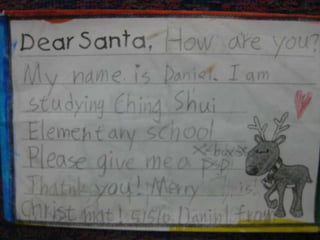 Dear Santa, How are you?
My name is Daniel. I am
studying Ching Shui
Elementary school
Please give me a psp
Thathk you! Merry is!
Christ
from